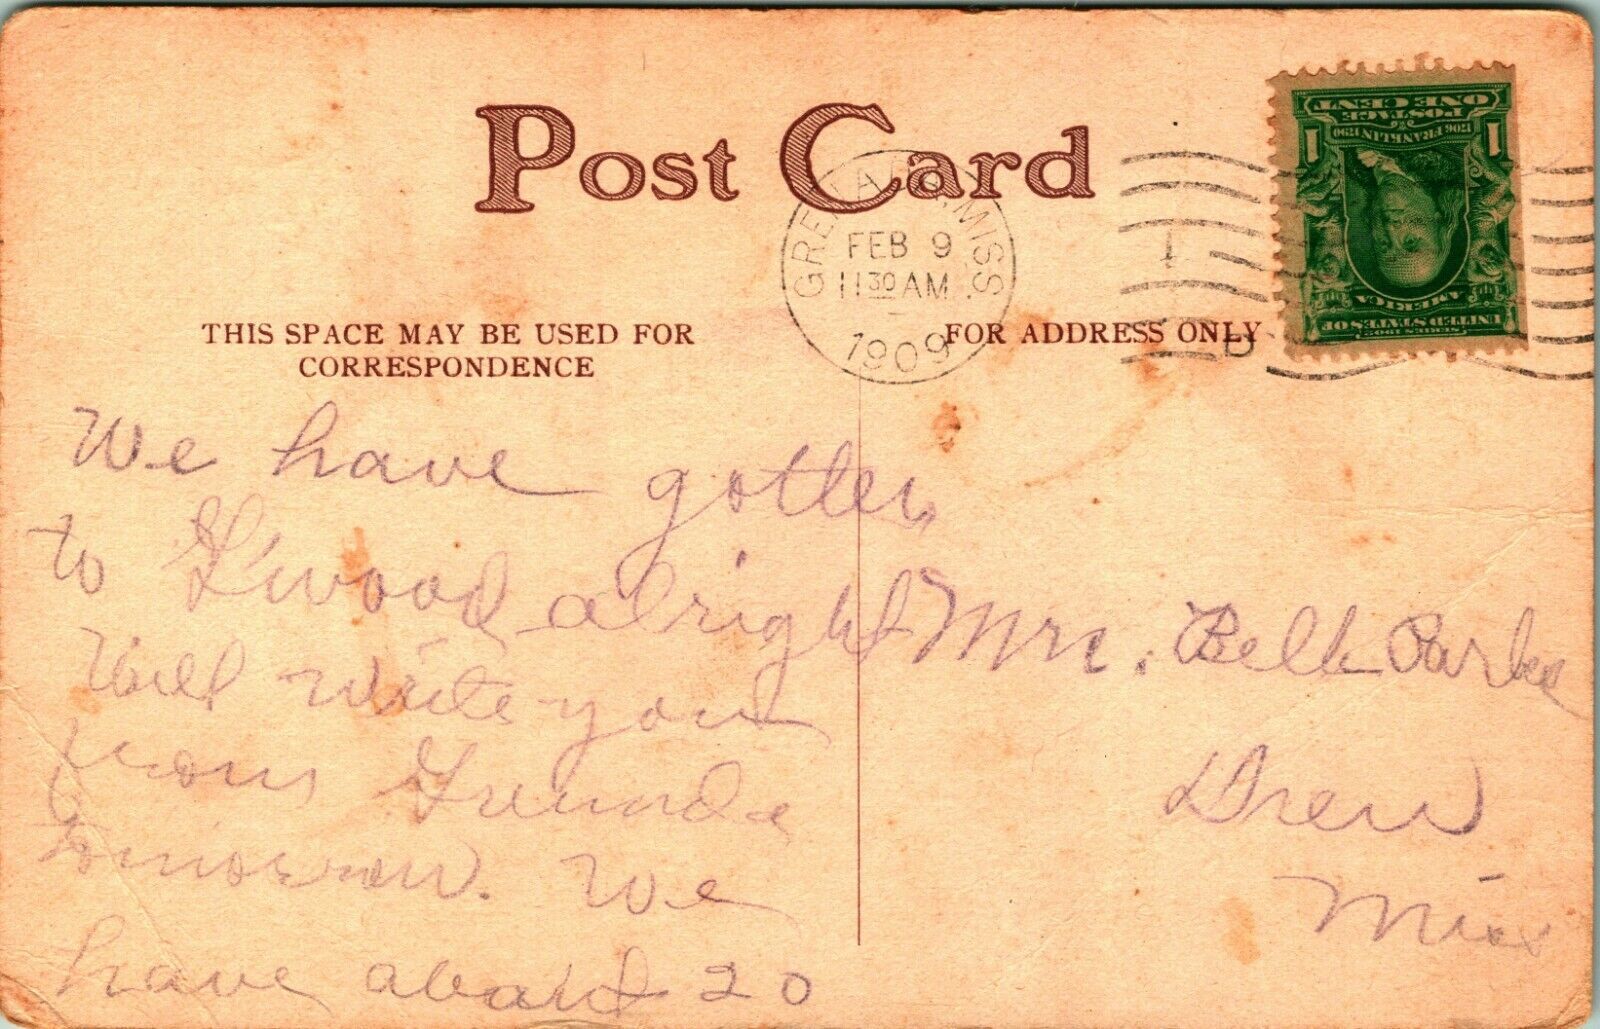 Post Card
GRENADA, MISS.
FEB 9
11 30 AM
1909
D
ONE CENT
POSTAGE
1706 FRANKLIN 1790
1 1
SERIES 1902
UNITED STATES OF
AMERICA
THIS SPACE MAY BE USED FOR
CORRESPONDENCE
FOR ADDRESS ONLY
We have gotten
to G'wood alright
Will write you
from
tomorrow. We
have about 20
Mrs. Belle Parker
Drew
Miss